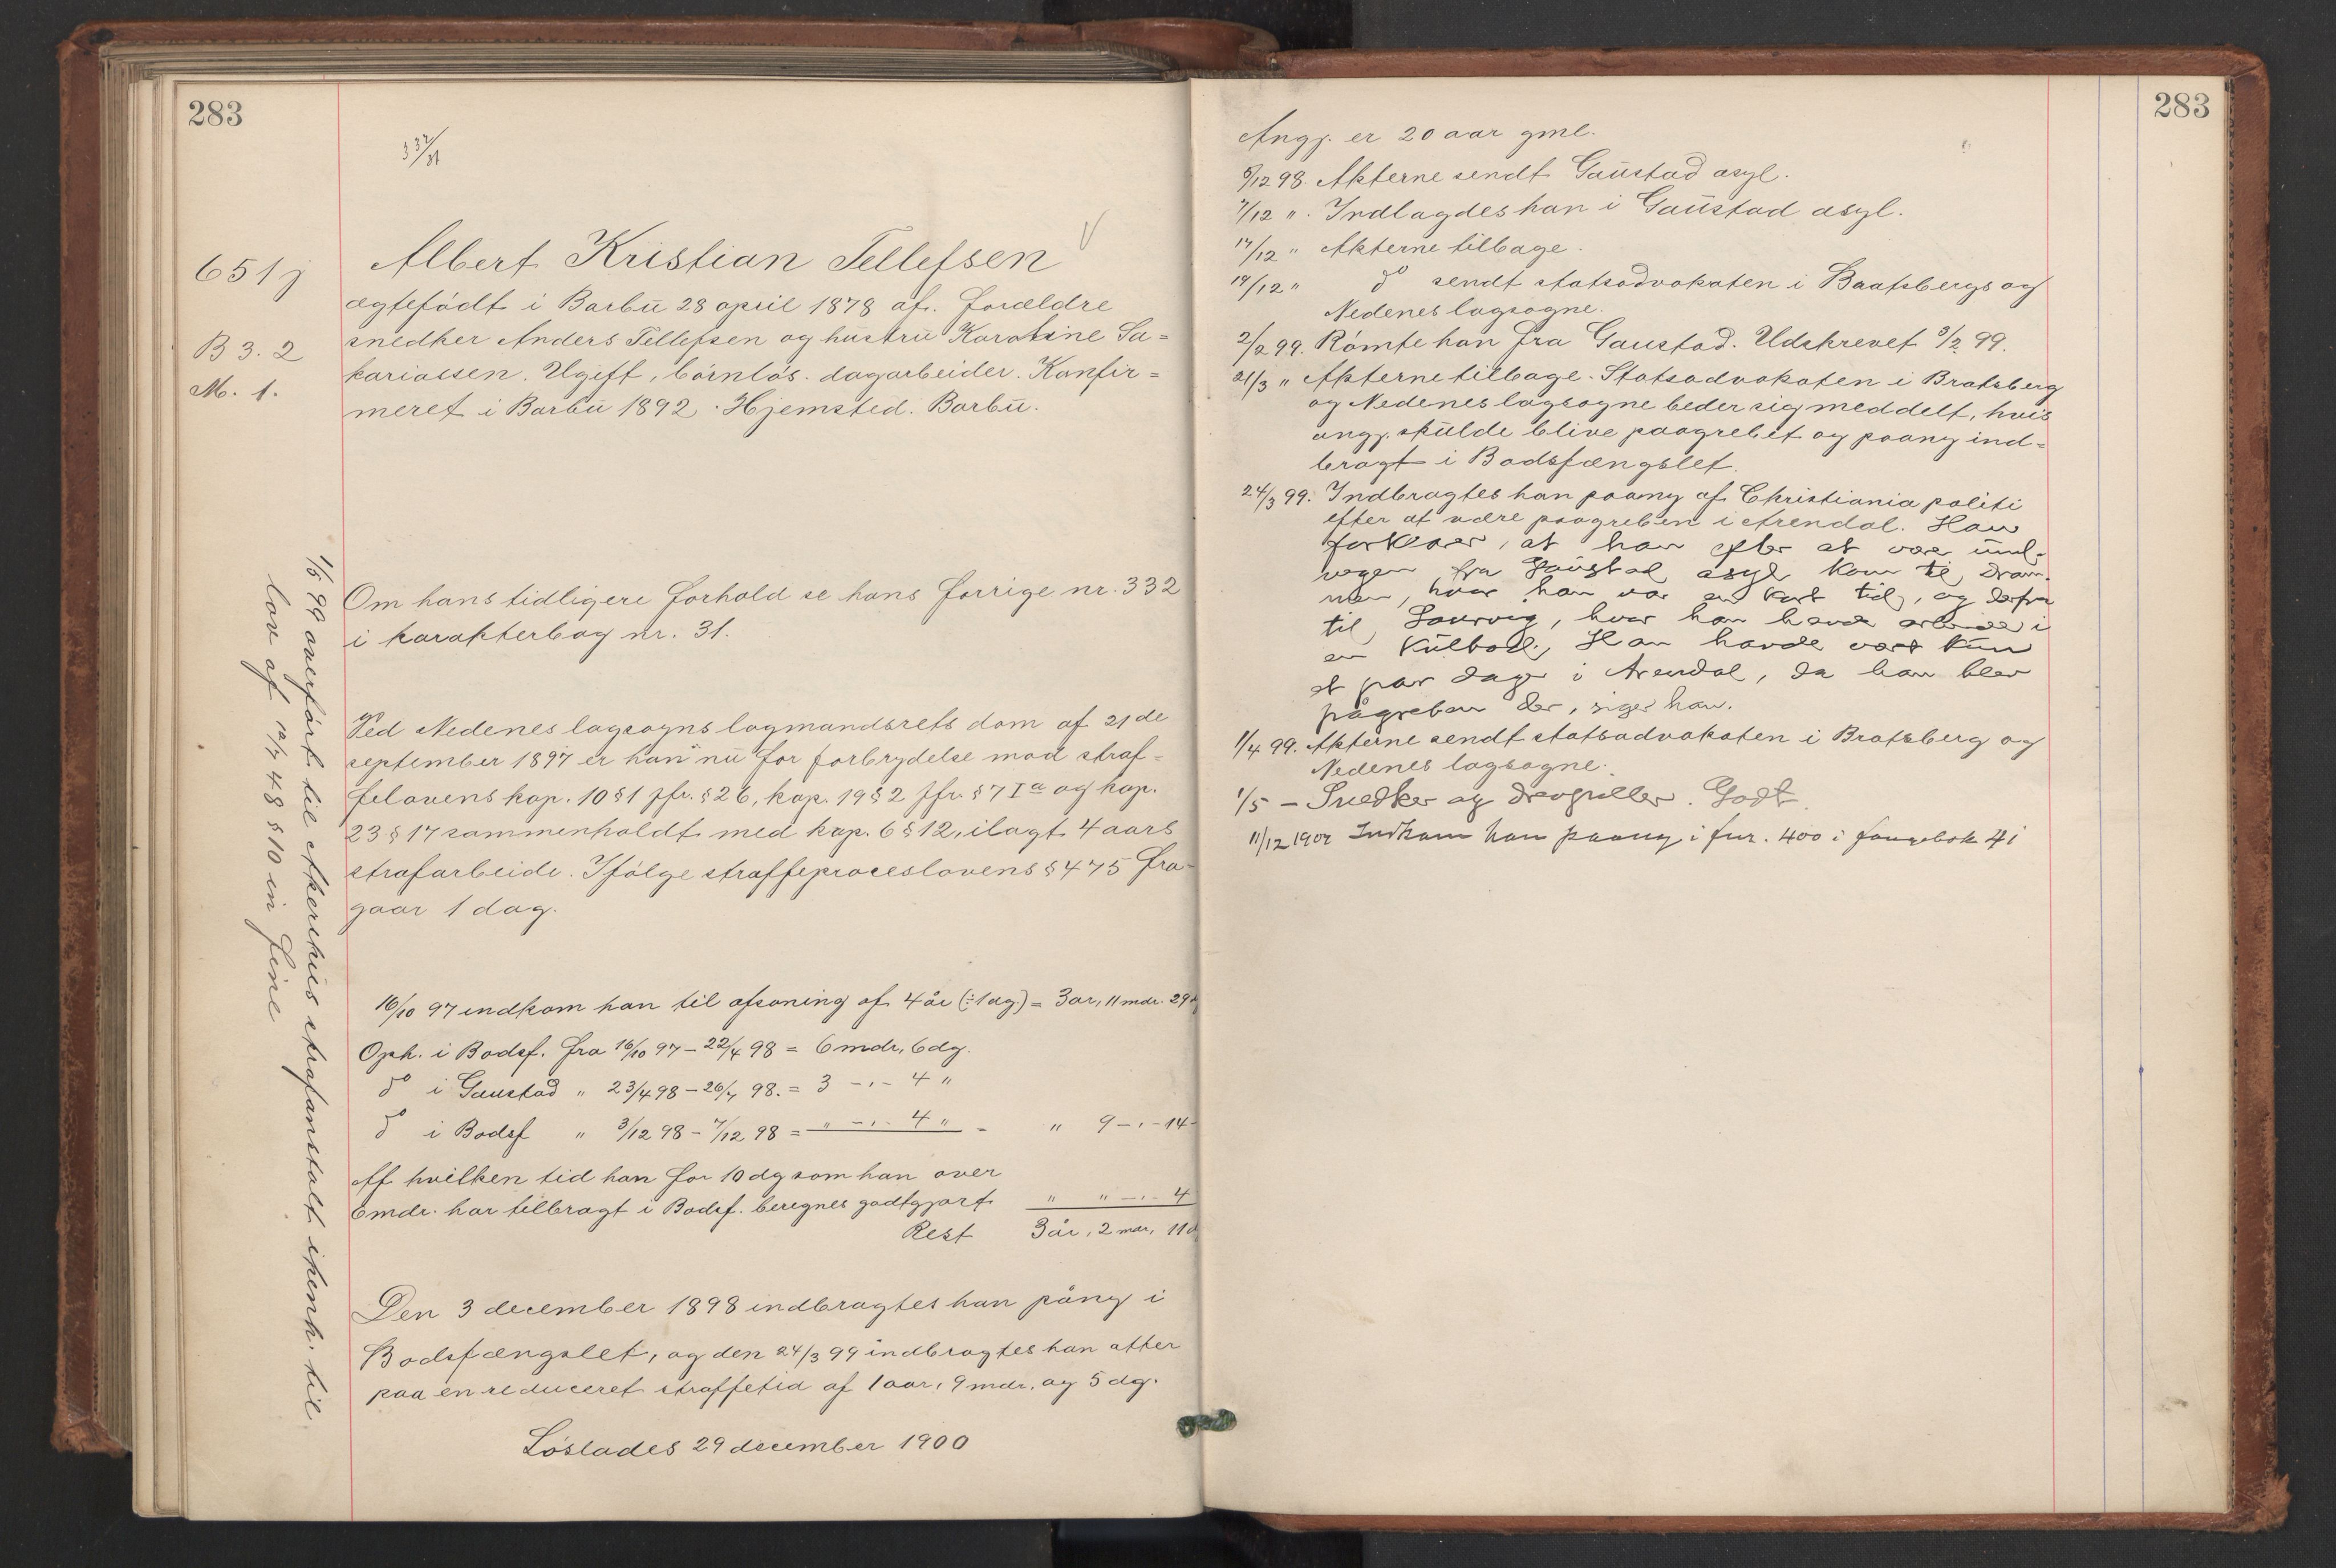 283
332/31
651 j
B 3. 2
M. 1.
Albert Kristian Tellefsen
ægtefödt i Barbu 28 april 1878 af. forældre
snedker Anders Tellefsen og hustru Karoline Sa=
kariassen. Ugift, börnlös. dagarbeider. Konfir=
meret i Barbu 1892. Hjemsted. Barbu.
Om hans tidligere forhold se hans forrige nr. 332
i karakterbog nr. 31.
Ved Nedenes lagsogns lagmandsrets dom af 21de
september 1897 er han nu for forbrydelse mod straf=
felovens kap. 10 § 1 jfr. § 26, kap. 19 § 2 jfr. § 7 I a og kap.
23 § 17 sammenholdt med kap. 6 § 12, ilagt 4 aars
strafarbeide. Ifölge straffeproceslovens § 475 fra-
gaar 1 dag.
16/10 97 indkom han til afsoning af 4 år (÷ 1 dg.) = 3 ar, 11 mdr. 29 d
Oph. i Bodsf. fra 16/10 97 – 22/4 98 = 6 mdr, 6 dg.
do i Gaustad " 23/4 98 – 26/7 98. = 3 –"– 4 "
do i Bodsf " 3/12 98 – 7/12 98 = " –"– 4 " = " 9 –"– 14
Af hvilken tid han for 10 dg som han over
6 mdr. har tilbragt i Bodsf. beregnes godtgjort " " –"– 4
Rest 3 år, 2 mdr, 11 d
Den 3 december 1898 indbragtes han påny i
Bodsfængslet, og den 24/3 99 indbragtes han atter
paa en reduceret straffetid af 1 aar, 9 mdr. og 5 dg.
Löslades 29 december 1900
1/5 99 overfört til Akershus strafanstalt i henh. til
lov af 12/7 48 § 10 in fine
283
Angj. er 20 aar gml.
5/12 98. Akterne sendt Gaustad asyl.
7/12 ". Indlagdes han i Gaustad asyl.
14/12 " Akterne tilbage.
19/12 " do sendt statsadvokaten i Bratsbergs og
Nedenes lagsogne.
2/2 99. Römte han fra Gaustad. Udskrevet 9/2 99.
21/3 " Akterne tilbage. Statsadvokaten i Bratsberg
og Nedenes lagsogne beder sig meddelt, hvis
angj. skulde blive paagrebet og paany ind=
bragt i Bodsfængslet.
24/3 99. Indbragtes han paany af Christiania politi
efter at være paagreben i Arendal. Han
forklarer, at han efter at være und-
vegen fra Gaustad asyl kom til Dram-
men, hvor han var en kort tid, og derfra
til Laurvig, hvor han havde arbeide i
en Kulbod. Han havde vært kun
et par dage i Arendal, da han blev
pågreben der, siger han.
1/4 99. Akterne sendt statsadvokaten i Bratsberg og
Nedenes lagsogne.
1/5 – Snedker og . Godt.
11/12 1902 Indkom han paany i fnr. 400 i fangebok 41